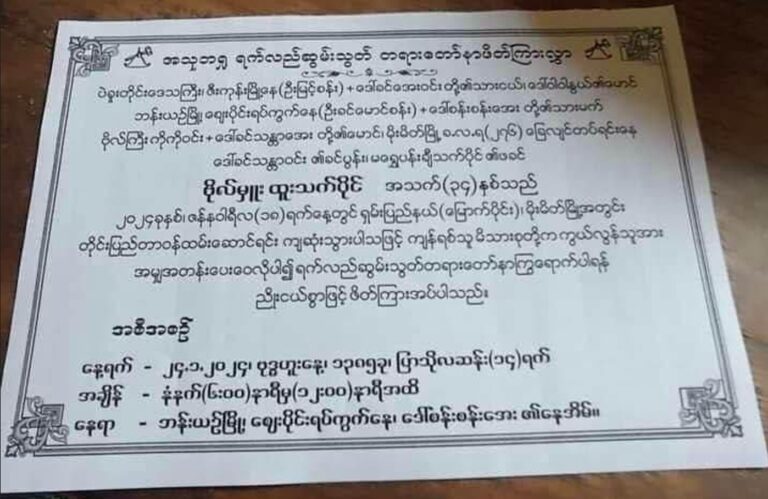 အသုဘရှု ရက်လည်ဆွမ်းသွတ် တရားတော်နာဖိတ်ကြားလွှာ
ပဲခူးတိုင်းဒေသကြီး၊ ဇီးကုန်းမြို့နေ(ဦးမြင့်စန်း) + ဒေါ်ခင်အေးဝင်း တို့၏သားငယ်၊ ဒေါ်ဝါဝါနွယ်၏မောင်
ဘန်းယဉ်မြို့၊ ဈေးပိုင်းရပ်ကွက်နေ(ဦးခင်မောင်စန်း) + ဒေါ်စန်းစန်းအေး တို့၏သားမက်
ဗိုလ်ကြီး ကိုကိုဝင်း + ဒေါ်ခင်သန္တာအေး တို့၏မောင်၊ မိုးမိတ်မြို့ ခ.လ.ရ(၂၇၆) ခြေလျင်တပ်ရင်းနေ
ဒေါ်ခင်သန္တာဝင်း ၏ခင်ပွန်း၊ မရွှေပန်းချီသက်ပိုင် ၏ဖခင်
ဗိုလ်မှူး ထူးသက်ပိုင် အသက်(၃၄)နှစ်သည်
၂၀၂၄ခုနှစ်၊ ဇန်နဝါရီလ(၁၈)ရက်နေ့တွင် ရှမ်းပြည်နယ်(မြောက်ပိုင်း)၊ မိုးမိတ်မြို့အတွင်း
တိုင်းပြည်တာဝန်ထမ်းဆောင်ရင်း ကျဆုံးသွားပါသဖြင့် ကျန်ရစ်သူ မိသားစုတို့က ကွယ်လွန်သူအား
အမျှအတန်းပေးဝေလိုပါ၍ ရက်လည်ဆွမ်းသွတ်တရားတော်နာကြွရောက်ပါရန်
ညှိုးငယ်စွာဖြင့် ဖိတ်ကြားအပ်ပါသည်။
အစီအစဉ်
နေ့ရက် - ၂၄.၁.၂၀၂၄၊ ဗုဒ္ဓဟူးနေ့၊ ၁၃၈၅ခု၊ ပြာသိုလဆန်း(၁၄)ရက်
အချိန် - နံနက်(၆:၀၀)နာရီမှ(၁၂:၀၀)နာရီအထိ
နေရာ - ဘန်းယဉ်မြို့၊ ဈေးပိုင်းရပ်ကွက်နေ၊ ဒေါ်စန်းစန်းအေး ၏နေအိမ်။